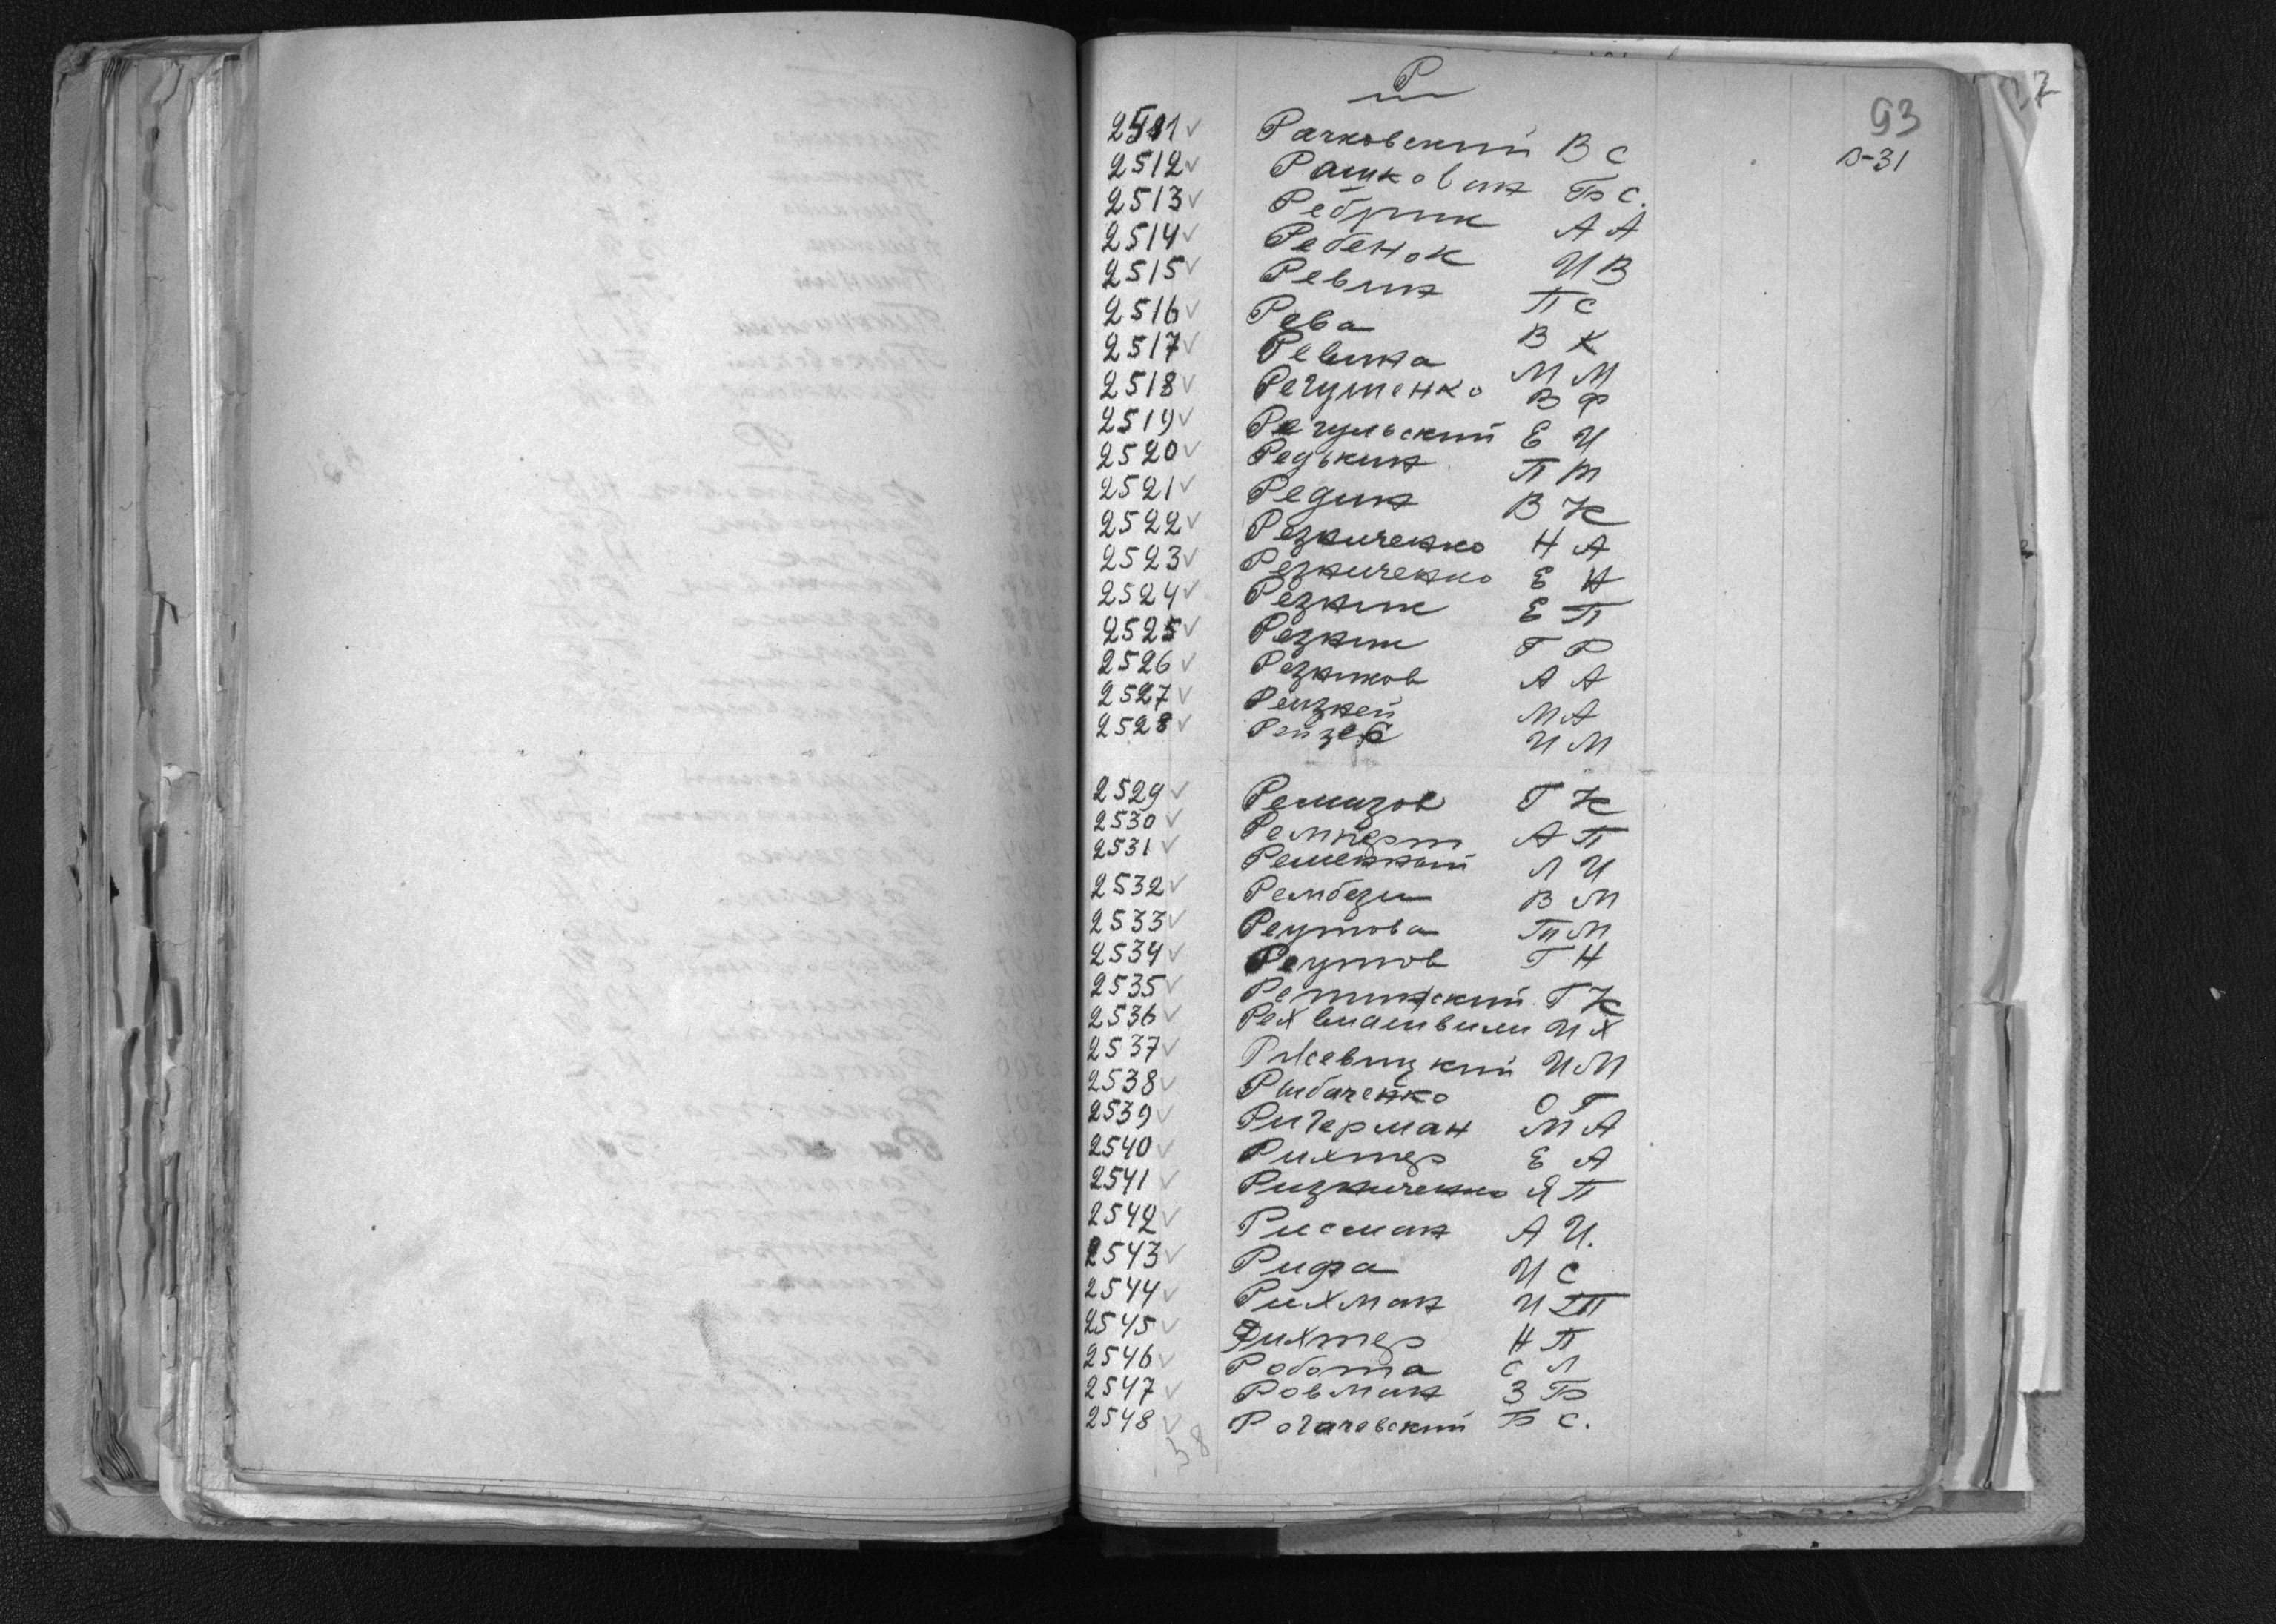 Р
93
В-31
2511 Рачковский В С
2512 Рашкован Б С.
2513 Ребрик А А
2514 Ребенок И В
2515 Ревин П С
2516 Рева В К
2517 Ревина М М
2518 Регушенко В Ф
2519 Регульский Е И
2520 Редькин П М
2521 Редин В К
2522 Резниченко Н А
2523 Резниченко Е Н
2524 Резник Е П
2525 Резник Г Р
2526 Резников А А
2527 М А
2528 И М
2529 Ремизов Г К
2530 Ремперт А П
2531 Л И
2532 Рембези В М
2533 Реутова М
2534 Реутов Г Н
2535 Ретинский Г К
2536 Рехвиашвили И Х
2537 Ржевицкий И М
2538 Рыбаченко О Г
2539 Ригерман М А
2540 Рихтер Е А
2541 Ризниченко Я П
2542 Рисман А И.
2543 Рифа И С
2544 Рихман И П
2545 Рихтер Н П
2546 Робота С Л
2547 Ровман З Б
2548 Рогачевский Б С.
38